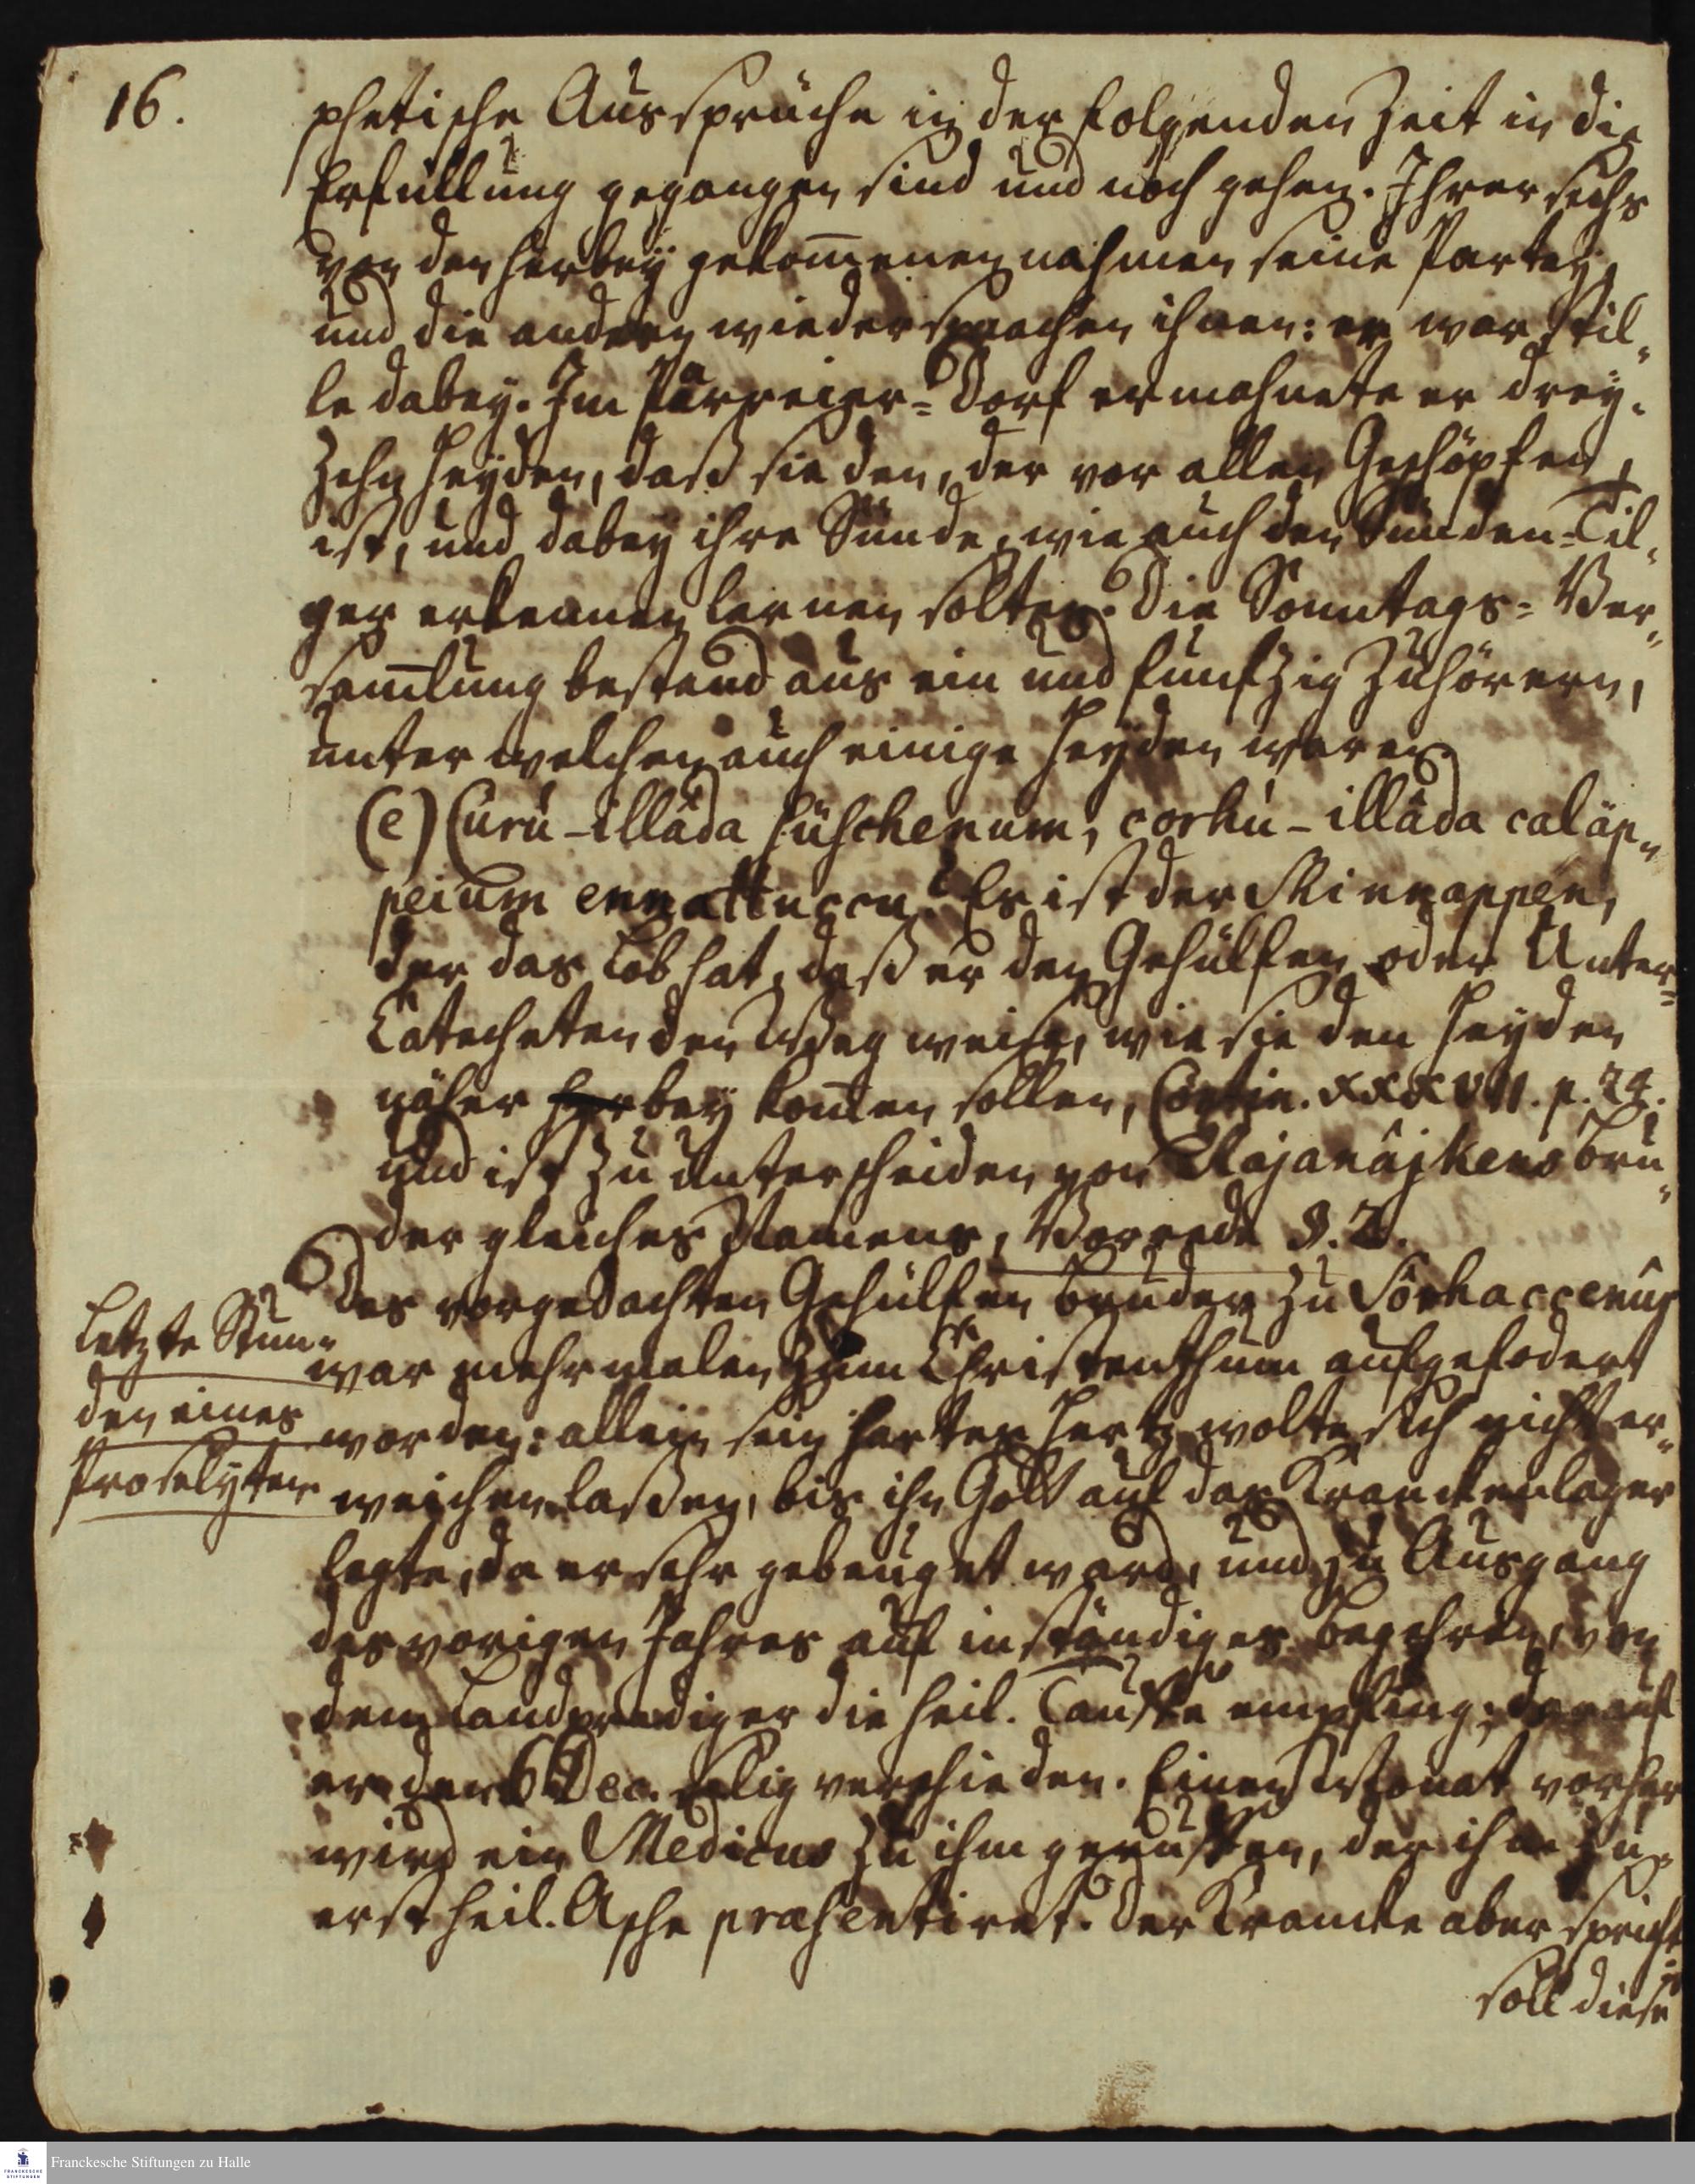 16.
phetische Aussprüche in der folgenden Zeit in die
Erfüllung gegangen sind und noch gehen. Ihrer sechs
von den herbey gekom̅enen nahmen seine Partey,
und die andern wiedersprachen ihnen: er war stil-
le dabey. Im Parreier-Dorf ermahnete er drey-
zehn Heyden, daß sie den, der vor allen Geschöpfen
ist, und dabey ihre Sünde, wie auch den Sünden-Til-
ger erkennen lernen solten. Die Sonntags-Ver-
sam̅lung bestand aus ein und funfzig Zuhörern,
unter welchen auch einige Heyden waren.
(e) Curu-illâda
corhu-illâda caläp-
peium ennattuccu. Es ist der Minnappen,
der das Lob hat, daß er den Gehülfen oder Unter-
Catecheten den Weg weise, wie sie den Heyden
näher herbey kom̅en sollen, Contin. XXXVII. p. 24.
und ist zu unterscheiden von Rajanâjkens Bru-
der gleiches Namens, Vorrede §. 2.
Letzte Stun-
den eines
Proselyten
Des vorgedachten Gehülfen Bruder zu
war mehrmalen zum Christenthum aufgefodert
worden: allein sein hartes Hertz wolte sich nicht er-
weichen laßen, bis ihn Gott auf das Kranckenlager
legte, da er sehr gebeuget ward, und zu Ausgang
des vorigen Jahres auf inständiges Begehren, von
dem Landprediger die heil. Tauffe empfing; darauf
er den 6 Dec. selig verschieden. Einen Monat vorher
wird ein Medicus zu ihm geruffen, der ihm zu-
erst heil. Asche praesentiret. Der Krancke aber spricht
soll diese
Franckesche Stiftungen zu Halle
FRANCKESCHE STIFTUNGEN